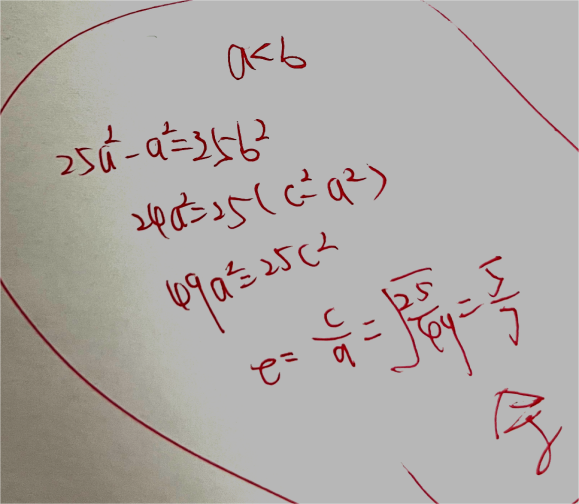 a<b
25a²-a²=25b²
24a²=25(c²-a²)
49a²=25c²
e=c/a=√(25/49)=5/7